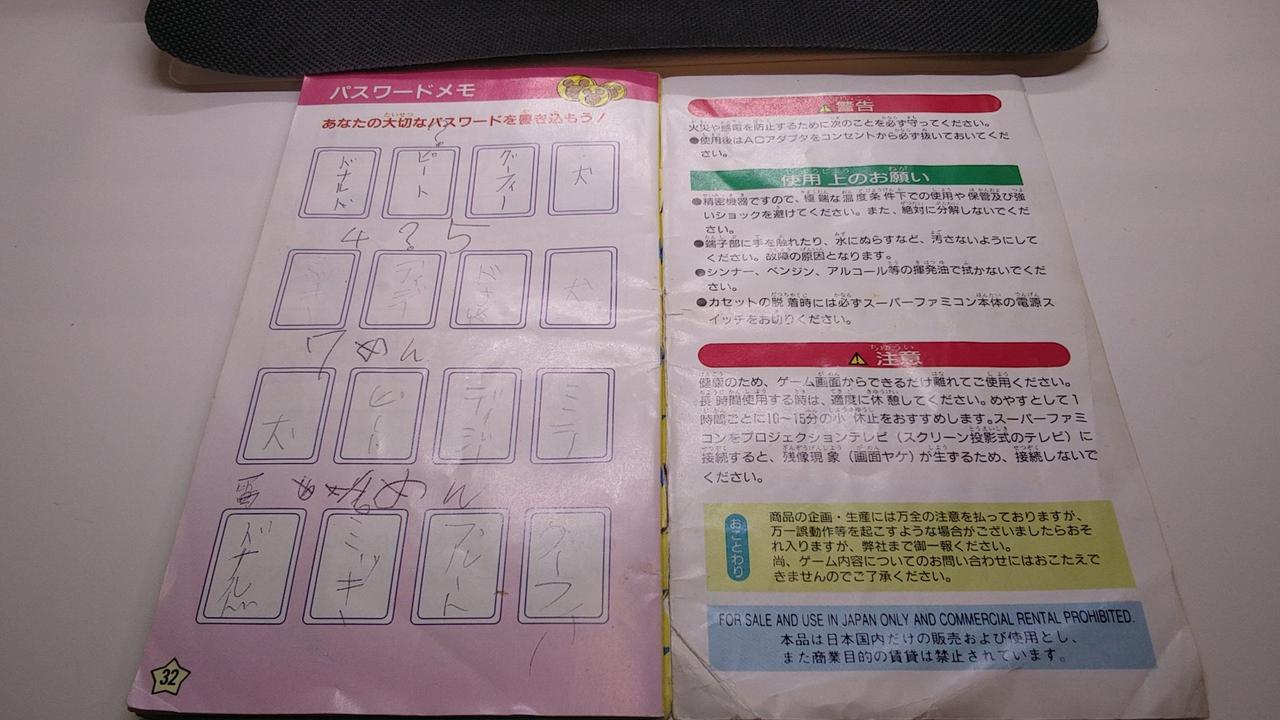 パスワードメモ
あなたの大切なパスワードを書き込もう！
ドナルド ピート グーフィー 犬
4 3 5
犬
7 めん
犬 ピート デイジー ミニー
めん
ドナルド ミッキー プルート グーフィー
32
警告
火災や感電を防止するために次のことを必ず守ってください。
●使用後はACアダプタをコンセントから必ず抜いておいてくだ
さい。
使用上のお願い
●精密機器ですので、極端な温度条件下での使用や保管及び強
いショックを避けてください。また、絶対に分解しないでくだ
さい。
●端子部に手を触れたり、水にぬらすなど、汚さないようにして
ください。故障の原因となります。
●シンナー、ベンジン、アルコール等の揮発油で拭かないでくだ
さい。
●カセットの脱着時には必ずスーパーファミコン本体の電源ス
イッチをお切りください。
注意
健康のため、ゲーム画面からできるだけ離れてご使用ください。
長時間使用する時は、適度に休憩してください。めやすとして1
時間ごとに10～15分の小休止をおすすめします。スーパーファミ
コンをプロジェクションテレビ（スクリーン投影式のテレビ）に
接続すると、残像現象（画面ヤケ）が生ずるため、接続しないで
ください。
おことわり
商品の企画・生産には万全の注意を払っておりますが、
万一誤動作等を起こすような場合がございましたらおそ
れ入りますが、弊社まで御一報ください。
尚、ゲーム内容についてのお問い合わせにはおこたえで
きませんのでご了承ください。
FOR SALE AND USE IN JAPAN ONLY AND COMMERCIAL RENTAL PROHIBITED.
本品は日本国内だけの販売および使用とし、
また商業目的の賃貸は禁止されています。